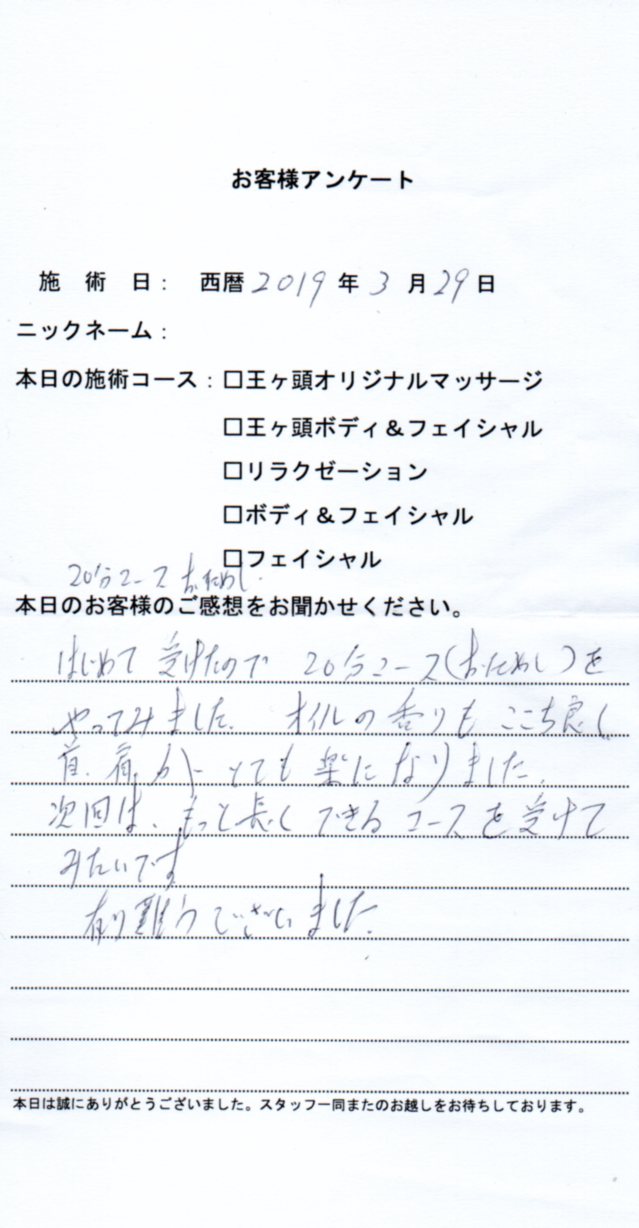 お客様アンケート
施術日： 西暦2019年3月29日
ニックネーム：
本日の施術コース：□王ヶ頭オリジナルマッサージ
□王ヶ頭ボディ＆フェイシャル
□リラクゼーション
□ボディ＆フェイシャル
□フェイシャル
20分コース おためし.
本日のお客様のご感想をお聞かせください。
はじめて受けたので 20分コース(おためし)を
やってみました. オイルの香りもここち良く
首、肩が とても楽になりました.
次回は、もっと長くできるコースを受けて
みたいです
有り難うございました.
本日は誠にありがとうございました。スタッフ一同またのお越しをお待ちしております。